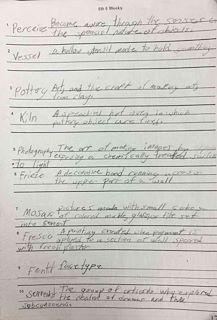 6th 6 Weeks
1 Perceive Become aware through the senses of
the special nature of objects.
2 Vessel a hollow utensil made to hold something
3 Pottery Art and the craft of making
from clay
4 Kiln A special hot oven in which
pottery object are fired
5 Photography The art of making images by
exposing a chemically treated surface
to light
6 Frieze A decorative band running across
the upper part of a wall
7 Mosaic pictures made with small cubes
of colored marble, glass or tile set
into
8 Fresco A painting created when pigment is
applied to a section of wall spread
with fresh plaster
9 Font type
10 The group of artists who explored
the of dreams and the
subconscious